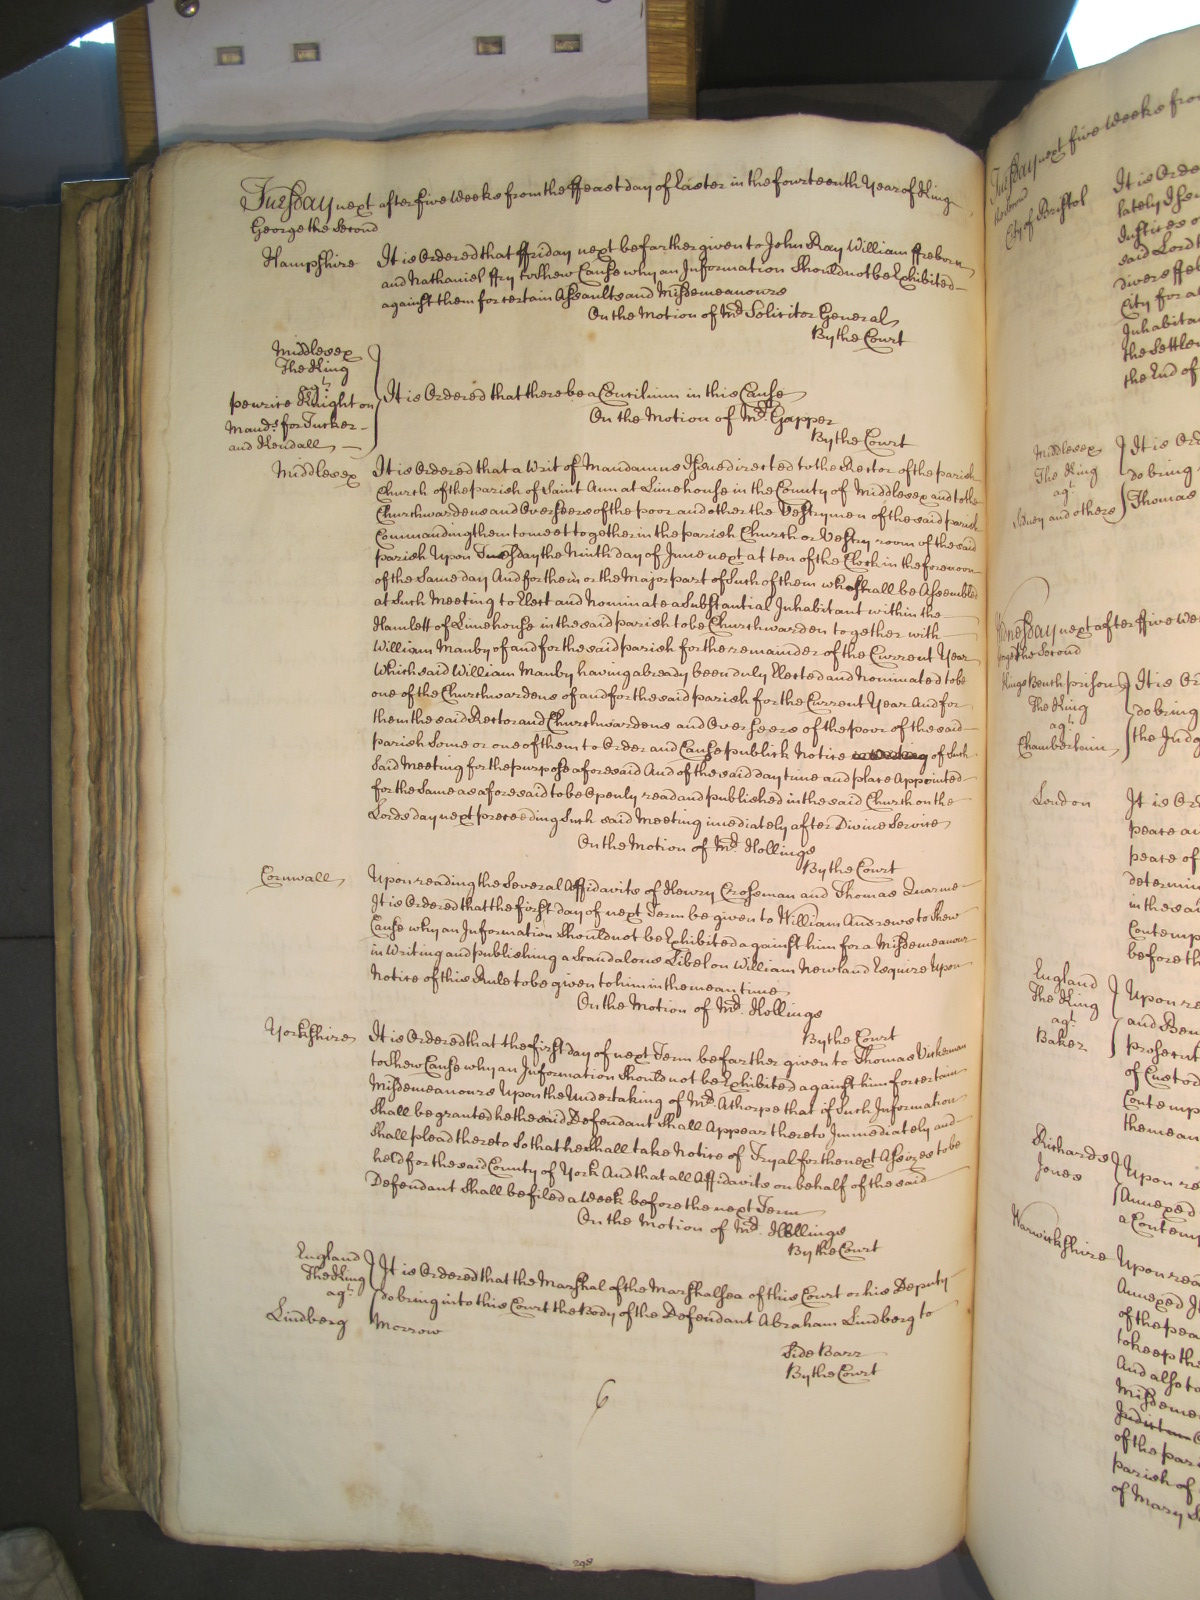 Tuesday next after five Weeks from the ffeast day of Easter in the fourteenth Year of King
George the Second
Hampshire It is Ordered that ffriday next be farther given to John Ray William ffreborn
and Nathaniel ffry to Shew Cause why an Information Should not be Exhibited
against them for certain Assaults and Misdemeanours
On the Motion of Mr. Solicitor General
By the Court
Middlesex
The King
agt.
penrice Knight on
Mand.s for Tucker
and Kendall
It is Ordered that there be a Concilium in this Cause
On the Motion of Mr. Gapper
By the Court
Middlesex It is Ordered that a Writ of Mandamus Issue directed to the Rector of the parish
Church of the parish of Saint Ann at Limehouse in the County of Middlesex and to the
Churchwardens and Overseers of the poor and other the Vestrymen of the said parish
Commanding them to meet together in the parish Church or Vestry room of the said
parish Upon Tuesday the Ninth day of June next at ten of the Clock in the forenoon
of the Same day And for them or the Major part of Such of them who Shall be Assembled
at Such Meeting to Elect and Nominate a Substantial Inhabitant within the
Hamlett of Limehouse in the said parish to be Churchwarden together with
William Manby of and for the said parish for the remainder of the Current Year
Which said William Manby having already been duly Elected and Nominated to be
one of the Churchwardens of and for the said parish for the Current Year And for
them the said Rector and Churchwardens and Overseers of the poor of the said
parish Some or one of them to Order and Cause publick Notice of Such
Said Meeting for the purpose aforesaid And of the said day time and place Appointed
for the Same as aforesaid to be Openly read and published in the said Church on the
Lords day next preceeding Such said Meeting imediately after Divine Service
On the Motion of Mr. Hollings
By the Court
Cornwall Upon reading the Several Affidavits of Henry Crossman and Thomas Quarme
It is Ordered that the first day of next Term be given to William Andrews to Shew
Cause why an Information Should not be Exhibited against him for a Misdemeanour
in Writing and publishing a Scandalous Libel on William Newland Esquire Upon
Notice of this Rule to be given to him in the mean time
On the Motion of Mr. Hollings
By the Court
Yorkshire It is Ordered that the first day of next Term be farther given to Thomas Vickerman
to Shew Cause why an Information Should not be Exhibited against him for certain
Misdemeanours Upon the Undertaking of Mr. Athorpe that if Such Information
Shall be granted he the said Defendant Shall Appear thereto Immediately and
Shall plead thereto So that he Shall take Notice of Tryal for the next Assizes to be
held for the said County of York And that all Affidavits on behalf of the said
Defendant Shall be filed a Week before the next Term
On the Motion of Mr. Hollings
By the Court
England
The King
agt.
Lindberg
It is Ordered that the Marshal of the Marshalsea of this Court or his Deputy
do bring into this Court the Body of the Defendant Abraham Lindberg to
Morrow
Side Barr
By the Court
6
298
Tuesday next five Weeks from
City of Bristol
It is Orde
lately Issu
Justices o
said Lord
divers
City for a
Inhabitan
the Settle
the End of
Middlesex
The King
agt.
and others
It is Ord
do bring
Thomas
Wednesday next after five We
the Second
Kings Bench prison
The King
agt.
Chamberlain
It is Or
do bring
the Judg
London It is Or
peace an
peace of
determin
in the sa
Contemp
before th
England
The King
agt.
Baker
Upon re
and Ben
prosecut
of Custod
Contemp
the mean
Richards
Jones
Upon re
Annexed
a Contemp
Warwickshire Upon rea
Annexed It
of the pea
to keep the
And also to
Misdeme
of the par
parish of
of Mary S